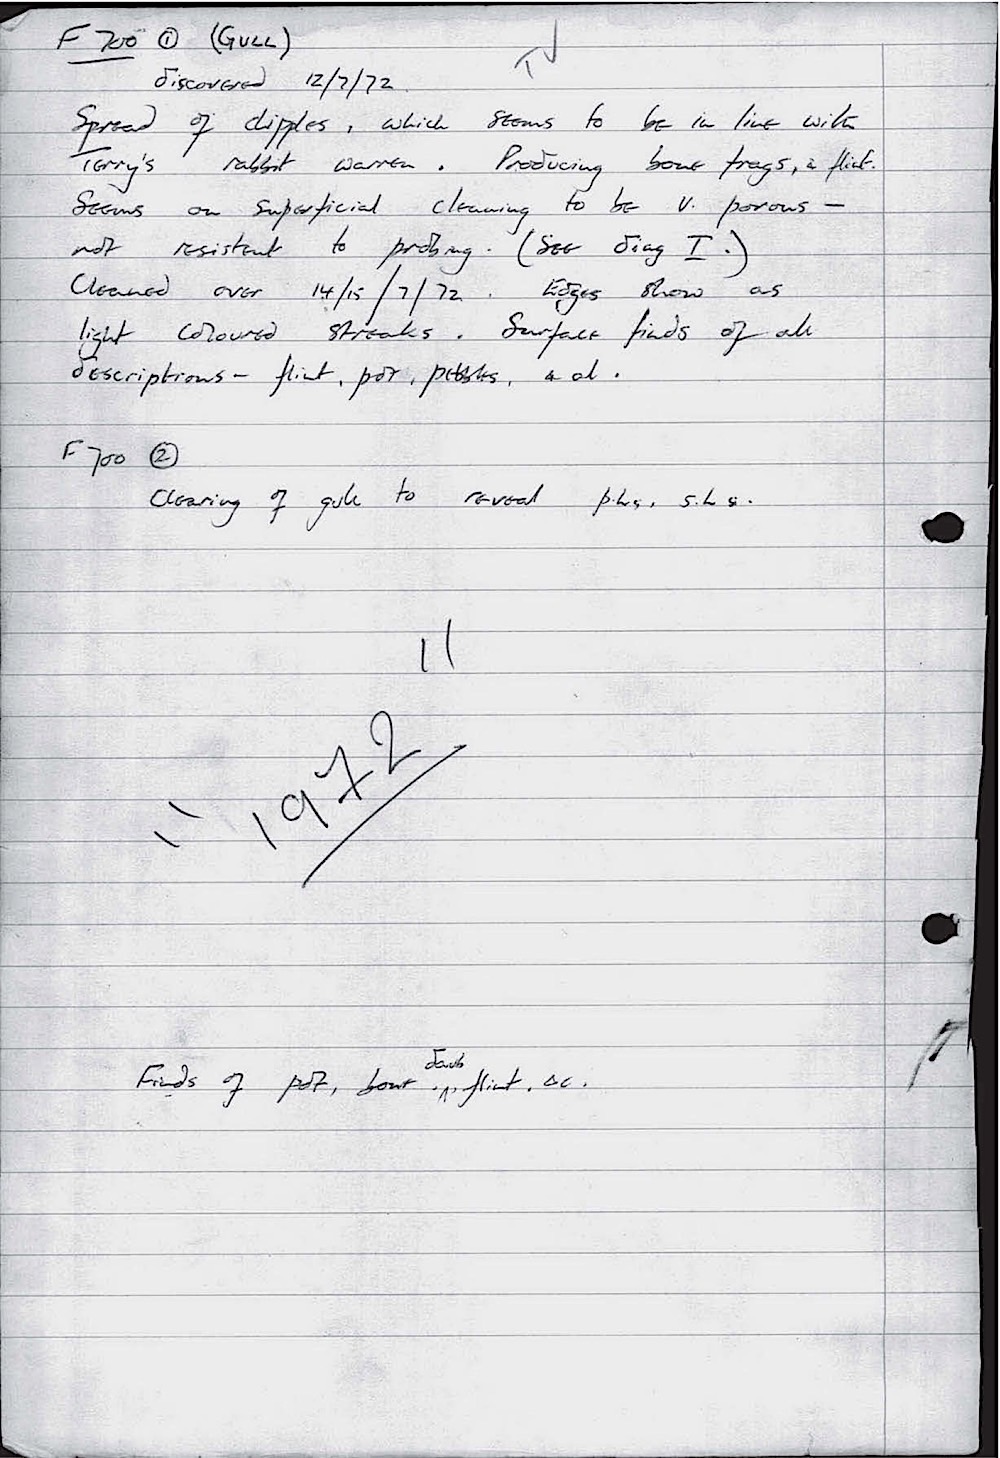 F 700 ① (GULL)
discovered 12/7/72
Spread of chipples, which seems to be in line with
Terry's rabbit warren. Producing bone frags, & flint.
Seems on superficial cleaning to be v. porous –
not resistent to probing. (See diag I.)
Cleaned over 14/15/7/72. Edges show as
light coloured streaks. Surface finds of all
descriptions – flint, pot, pebbles, & al.
F 700 ②
Clearing of gull to reveal p.hs, s.hs.
11
1972
11
daub
Finds of pot, bone, ^, flint, &c.